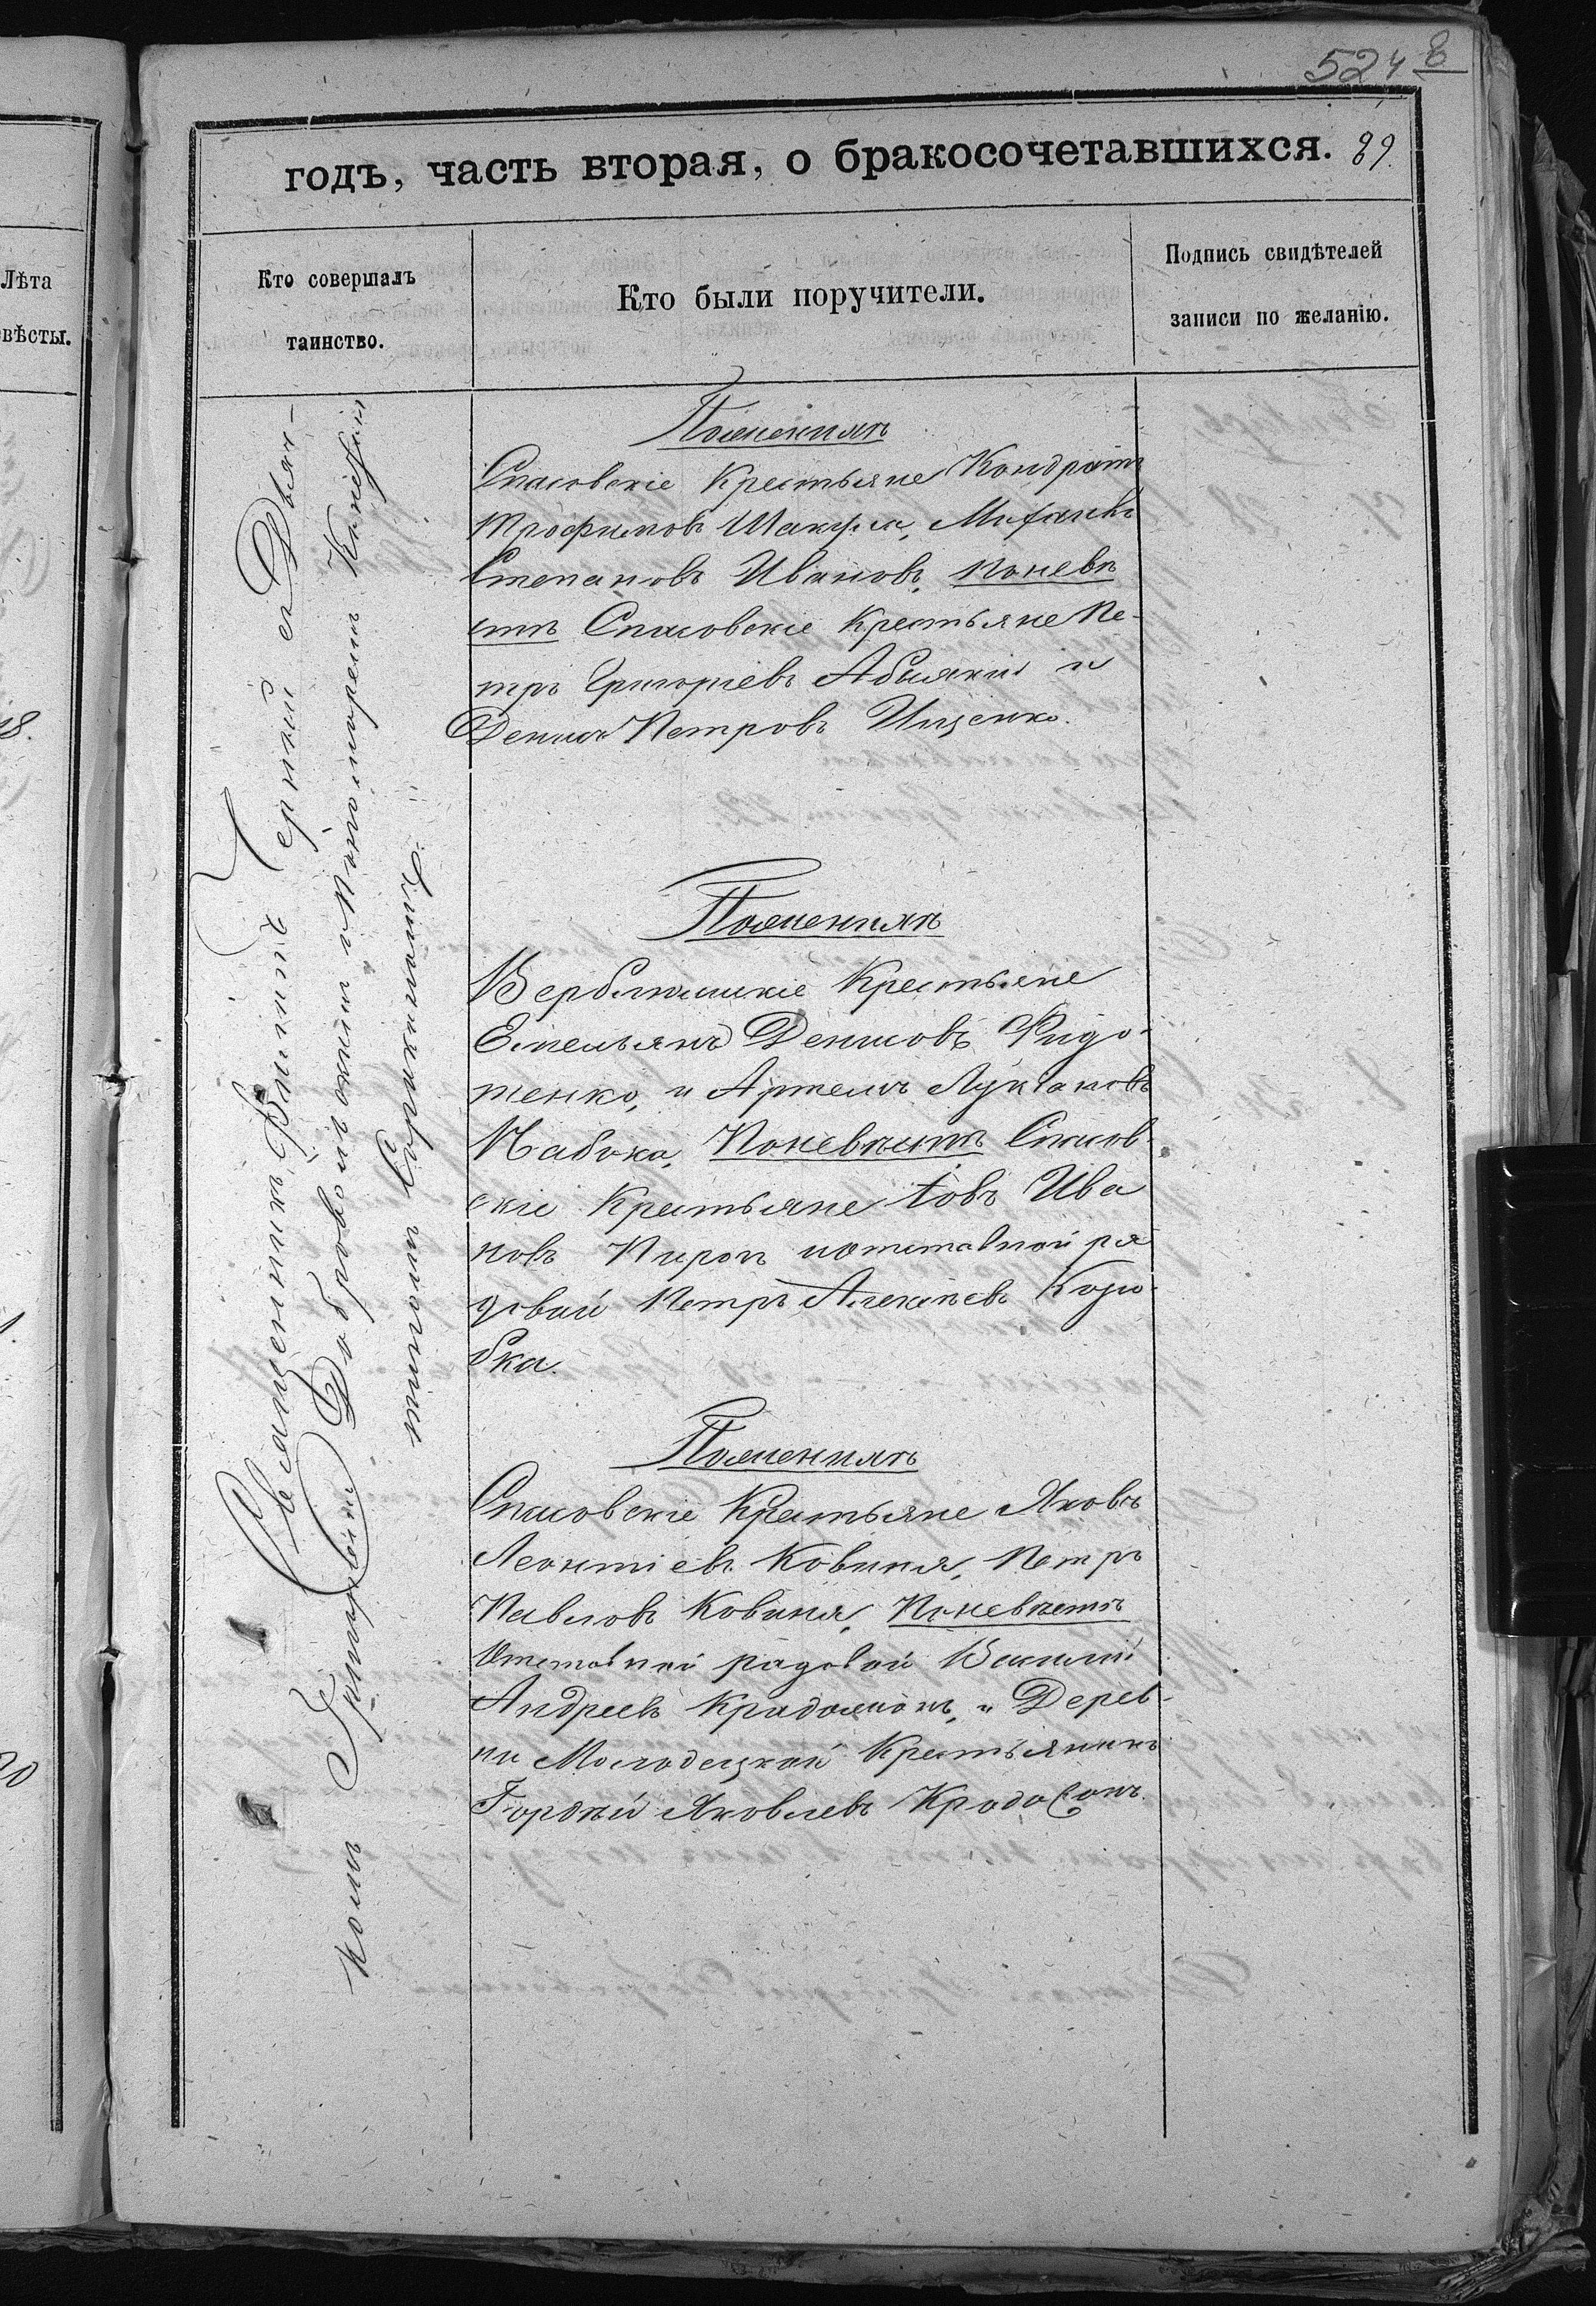 524 8
годъ, часть вторая, о бракосочетавшихся. 89.
Лѣта
вѣсты.
Кто совершалъ
таинство.
Кто были поручители.
Подпись свидѣтелей
записи по желанію.
18.
20
Священникъ Филиппъ Черный съ Діач-
комъ Григоріемъ Добровольскимъ и Пономаремъ
тиномъ
Поженихѣ
Спасовскіе Крестьяне Кондратъ
Трофимовъ Шакула, Михаилъ
Степановъ Ивановъ, Поневѣ
стѣ Спасовскіе Крестьяне Пе-
тръ Григоріевъ и
Денисъ Петровъ Ищенко.
Поженихѣ
Крестьяне
Емельянъ Денисовъ
тенко, и Артемъ
Чабака, Поневѣстѣ Спасов-
скіе Крестьяне Іовъ Ива
новъ и отставной ря
довый Петръ Алексѣевъ Козю-
бка.
Поженихѣ
Спасовскіе Крестьяне Яковъ
Леонтіевъ Ковиня, Петръ
Павловъ Ковиня, Поневѣстѣ
Отставной рядовой Василій
Андреевъ и Дерев-
ни Молодецкой Крестьянинъ
Гордѣй Яковлевъ